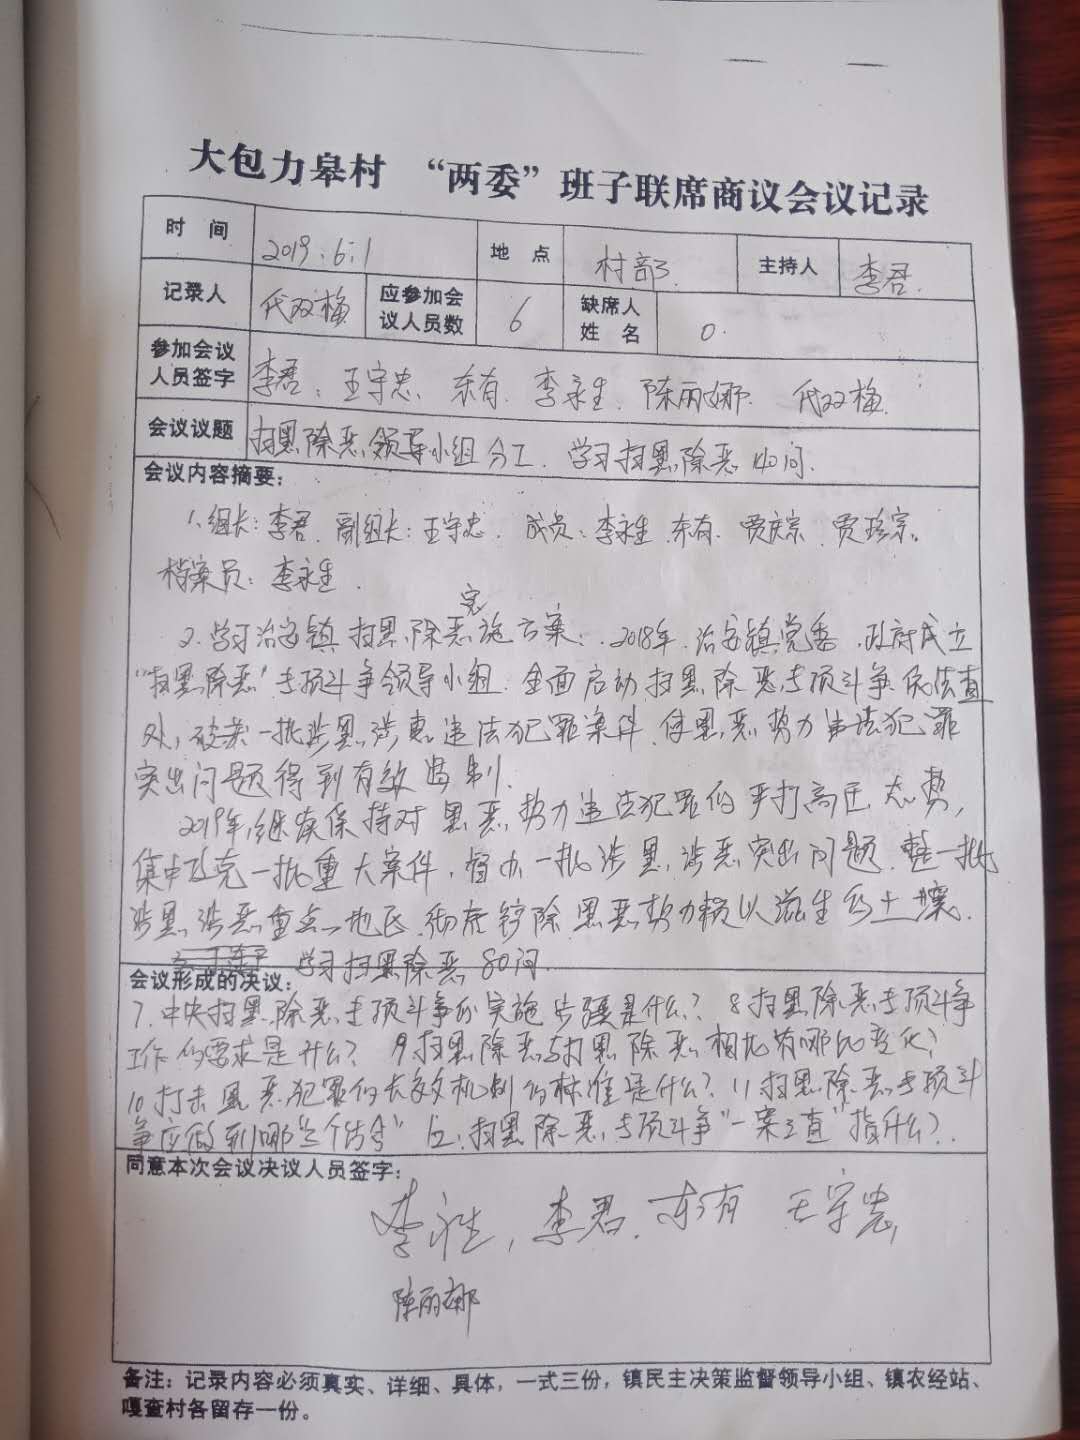 大包力皋村 “两委”班子联席商议会议记录
时 间 2019.6.1 地 点 村部 主持人 李君
记录人 代双梅 应参加会议人员数 6 缺席人姓名 0
参加会议人员签字 李君、王守忠、东有、李永生、陈丽娜、代双梅
会议议题 扫黑除恶领导小组分工、学习扫黑除恶 问
会议内容摘要：
1、组长：李君 副组长：王守忠、成员：李永生、东有、贾庆宗、贾珍宗。
档案员：李永生.
2、学习治安镇扫黑除恶实施方案：2018年，治安镇党委、政府成立
“扫黑除恶”专项斗争领导小组，全面启动扫黑除恶专项斗争，依法查
处，破案一批涉黑涉恶违法犯罪案件，使黑恶势力违法犯罪
突出问题得到有效遏制.
2019年，继续保持对黑恶势力违法犯罪的严打高压态势，
集中攻克一批重大案件，督办一批涉黑，涉恶突出问题，整一批
涉黑涉恶重点地区，彻底铲除黑恶势力赖以滋生的土壤.
学习扫黑除恶80问.
会议形成的决议：
7、中央扫黑除恶专项斗争的实施步骤是什么？8扫黑除恶专项斗争
工作的要求是什么？ 9扫黑除恶与打黑除恶相比有哪些变化？
10打击黑恶犯罪的长效机制的标准是什么？11扫黑除恶专项斗
争应做到哪“三个结合” 12、扫黑除恶专项斗争“一案三查”指什么？
同意本次会议决议人员签字：
李永生，李君、东有 王守忠
陈丽娜
备注：记录内容必须真实、详细、具体，一式三份，镇民主决策监督领导小组、镇农经站、
嘎查村各留存一份。